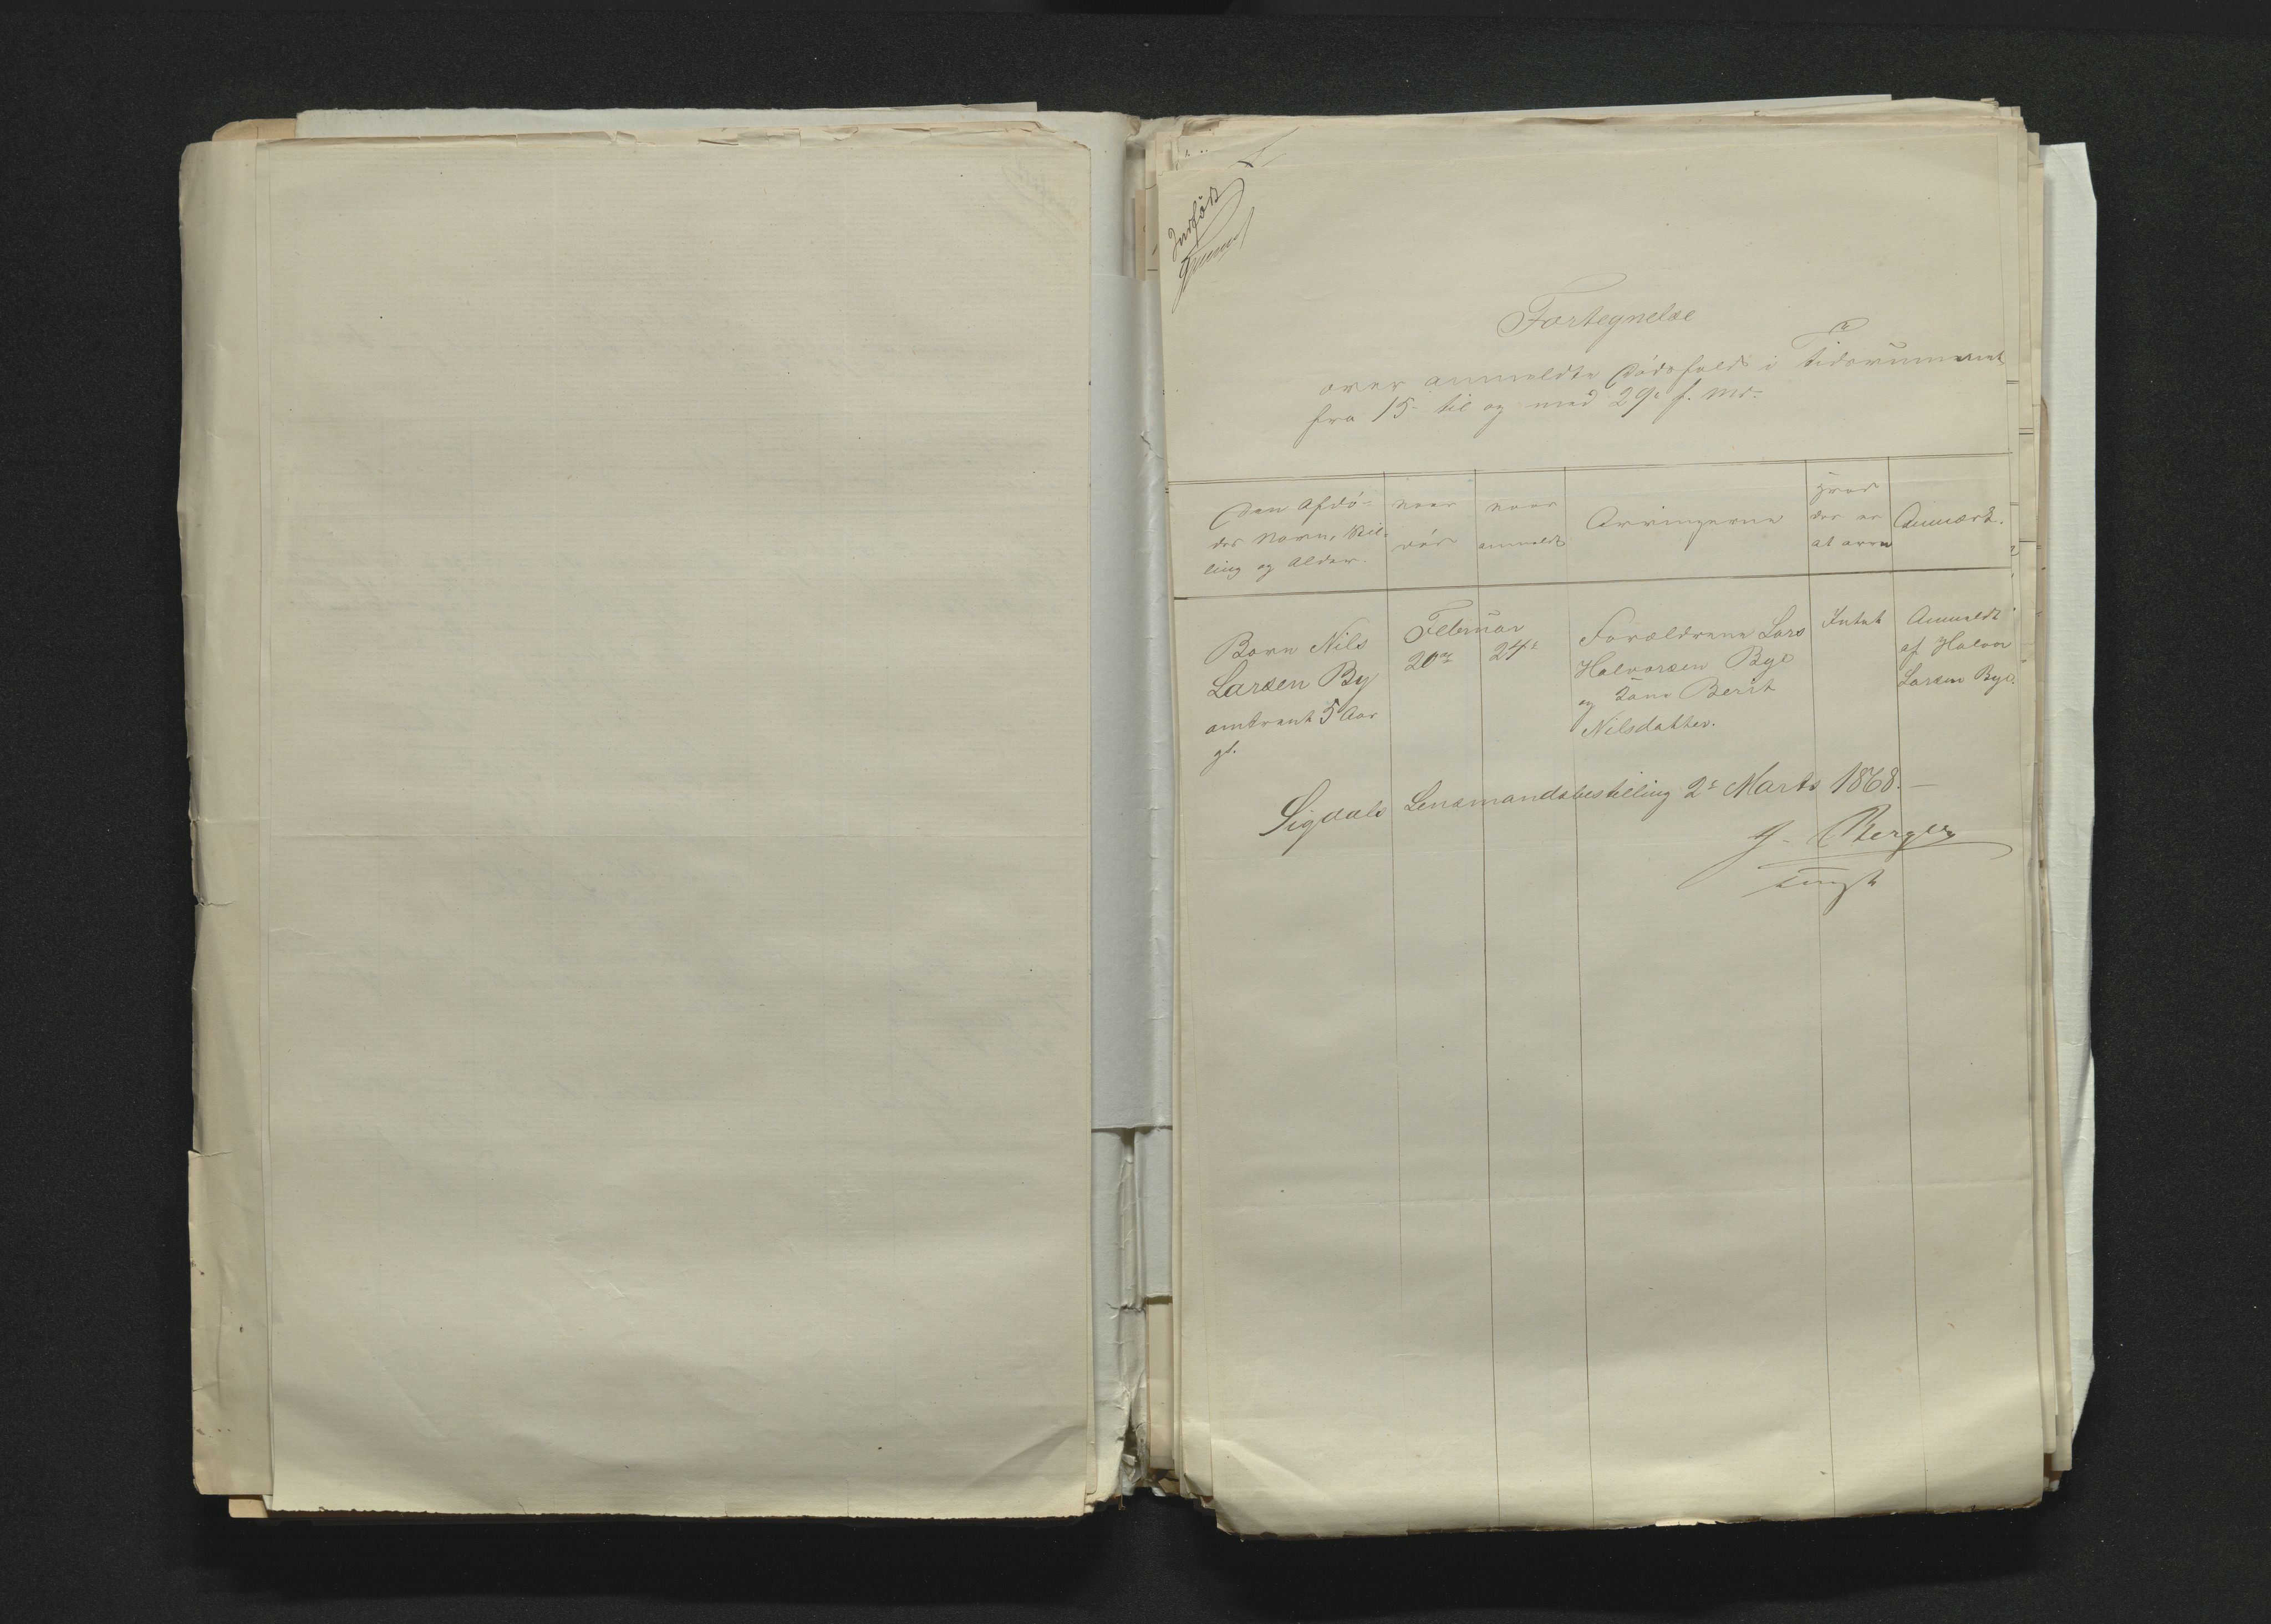 Indført
Fortegnelse
over anmeldte Dødsfald i Tidsrummet
fra 15. til og med 29e f. Md.
Den Afdø-
des Navn, Stil-
ling og Alder.
naar
død
naar
anmeldt
Arvingerne
Hvad
der er
at arve
Anmærk.
Barn Nils
Larsen By
omtrent 5 Aar
gl.
Februar
20de
24e
Forældrene Lars
Halvorsen Bye
og Kone Berit
Nilsdatter.
Intet
Anmeldt
af Halvor
Larsen Bye.
Sigdals Lensmandsbestilling 2e Marts 1868.
Berger
konst